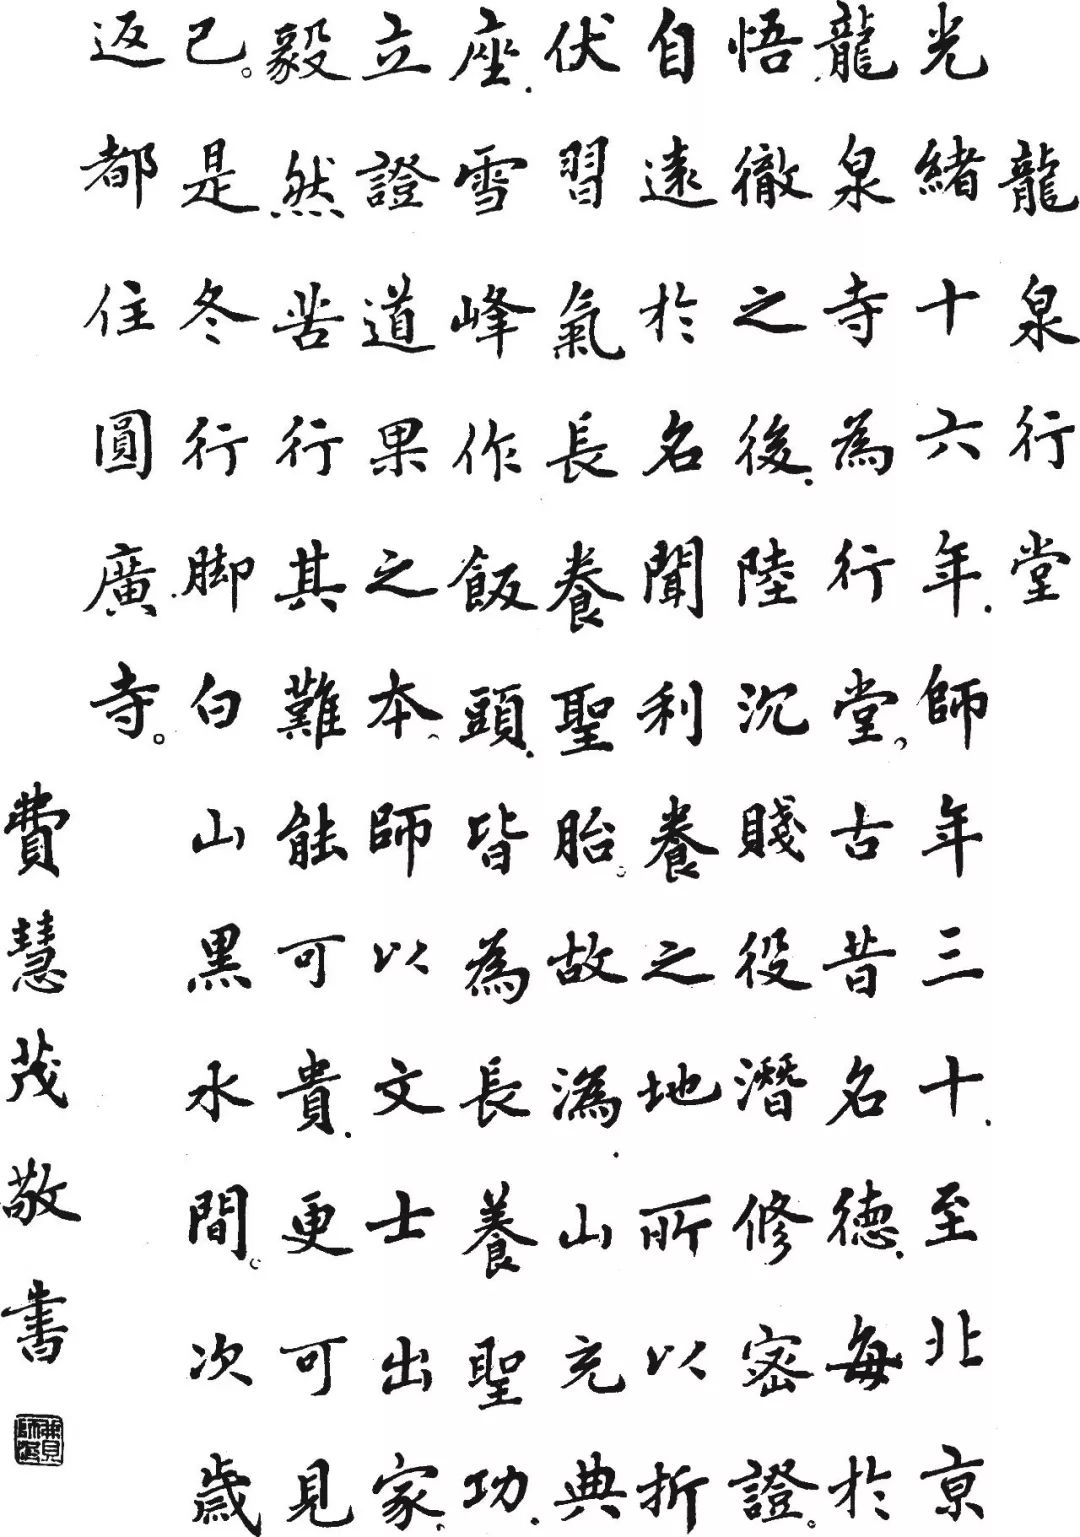 龍泉行堂
光緒十六年.師年三十.至北京
龍泉寺為行堂。古昔名德.每於
悟徹之後.陸沉賤役潛修密證。
自遠於名聞利養之地所以折
伏習氣長養聖胎。故溈.山充典
座.雪峰作飯頭.皆為長養聖功.
立證道果之本。師以文士出家.
毅然苦行其難能可貴.更可見
已。是冬行脚.白山黑水間。次歲
返都住圓廣寺。
費慧茂敬書